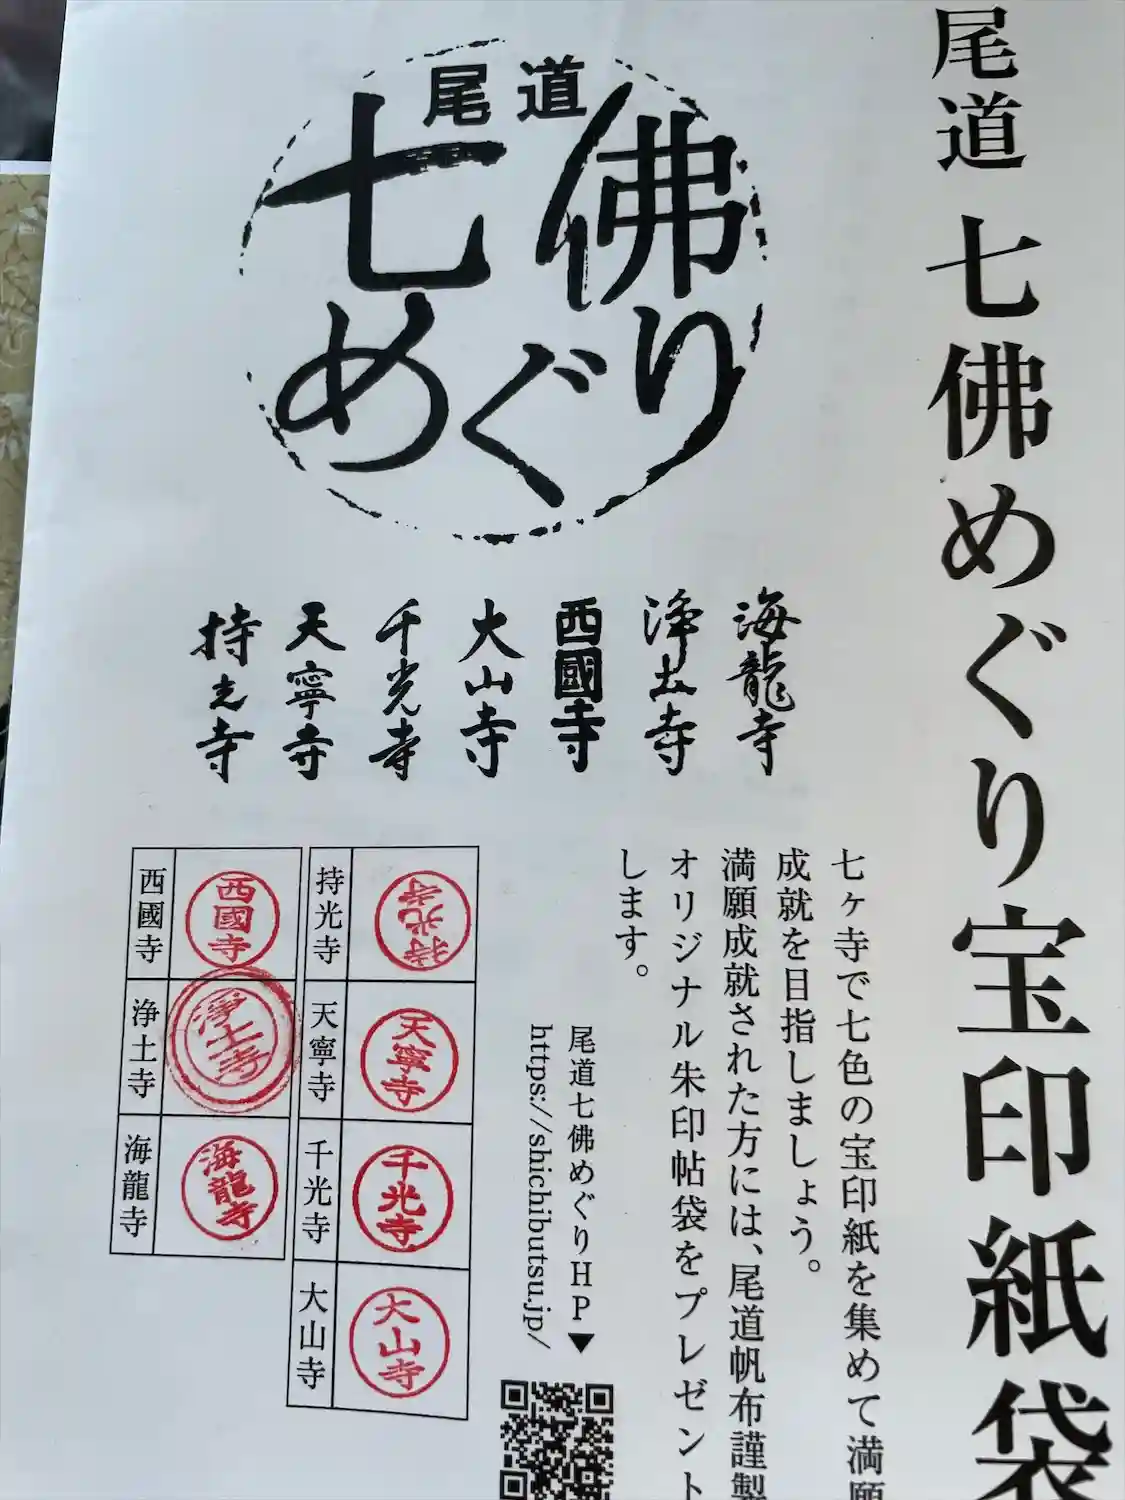 尾道 七佛めぐり宝印紙袋
尾道
七佛
めぐり
海龍寺
浄土寺
西國寺
大山寺
千光寺
天寧寺
持光寺
七ヶ寺で七色の宝印紙を集めて満願
成就を目指しましょう。
満願成就された方には、尾道帆布謹製
オリジナル朱印帖袋をプレゼント
します。
尾道七佛めぐりHP▼
https://shichibutsu.jp/
持光寺
持光寺
天寧寺
天寧寺
千光寺
千光寺
大山寺
大山寺
西國寺
西國寺
浄土寺
淨土寺
海龍寺
海龍寺